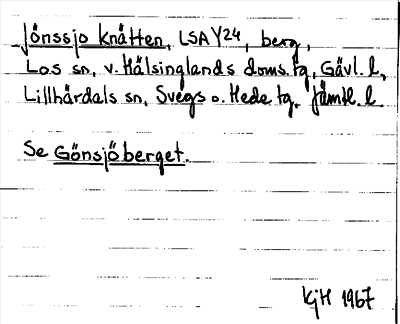 Jönssjo knätten, LSA Y24, berg,
Los sn, v. Hälsinglands doms. tg, Gävl. l,
Lillhärdals sn, Svegs o. Hede tg. Jämtl. l
Se Gönsjöberget.
KjH 1967